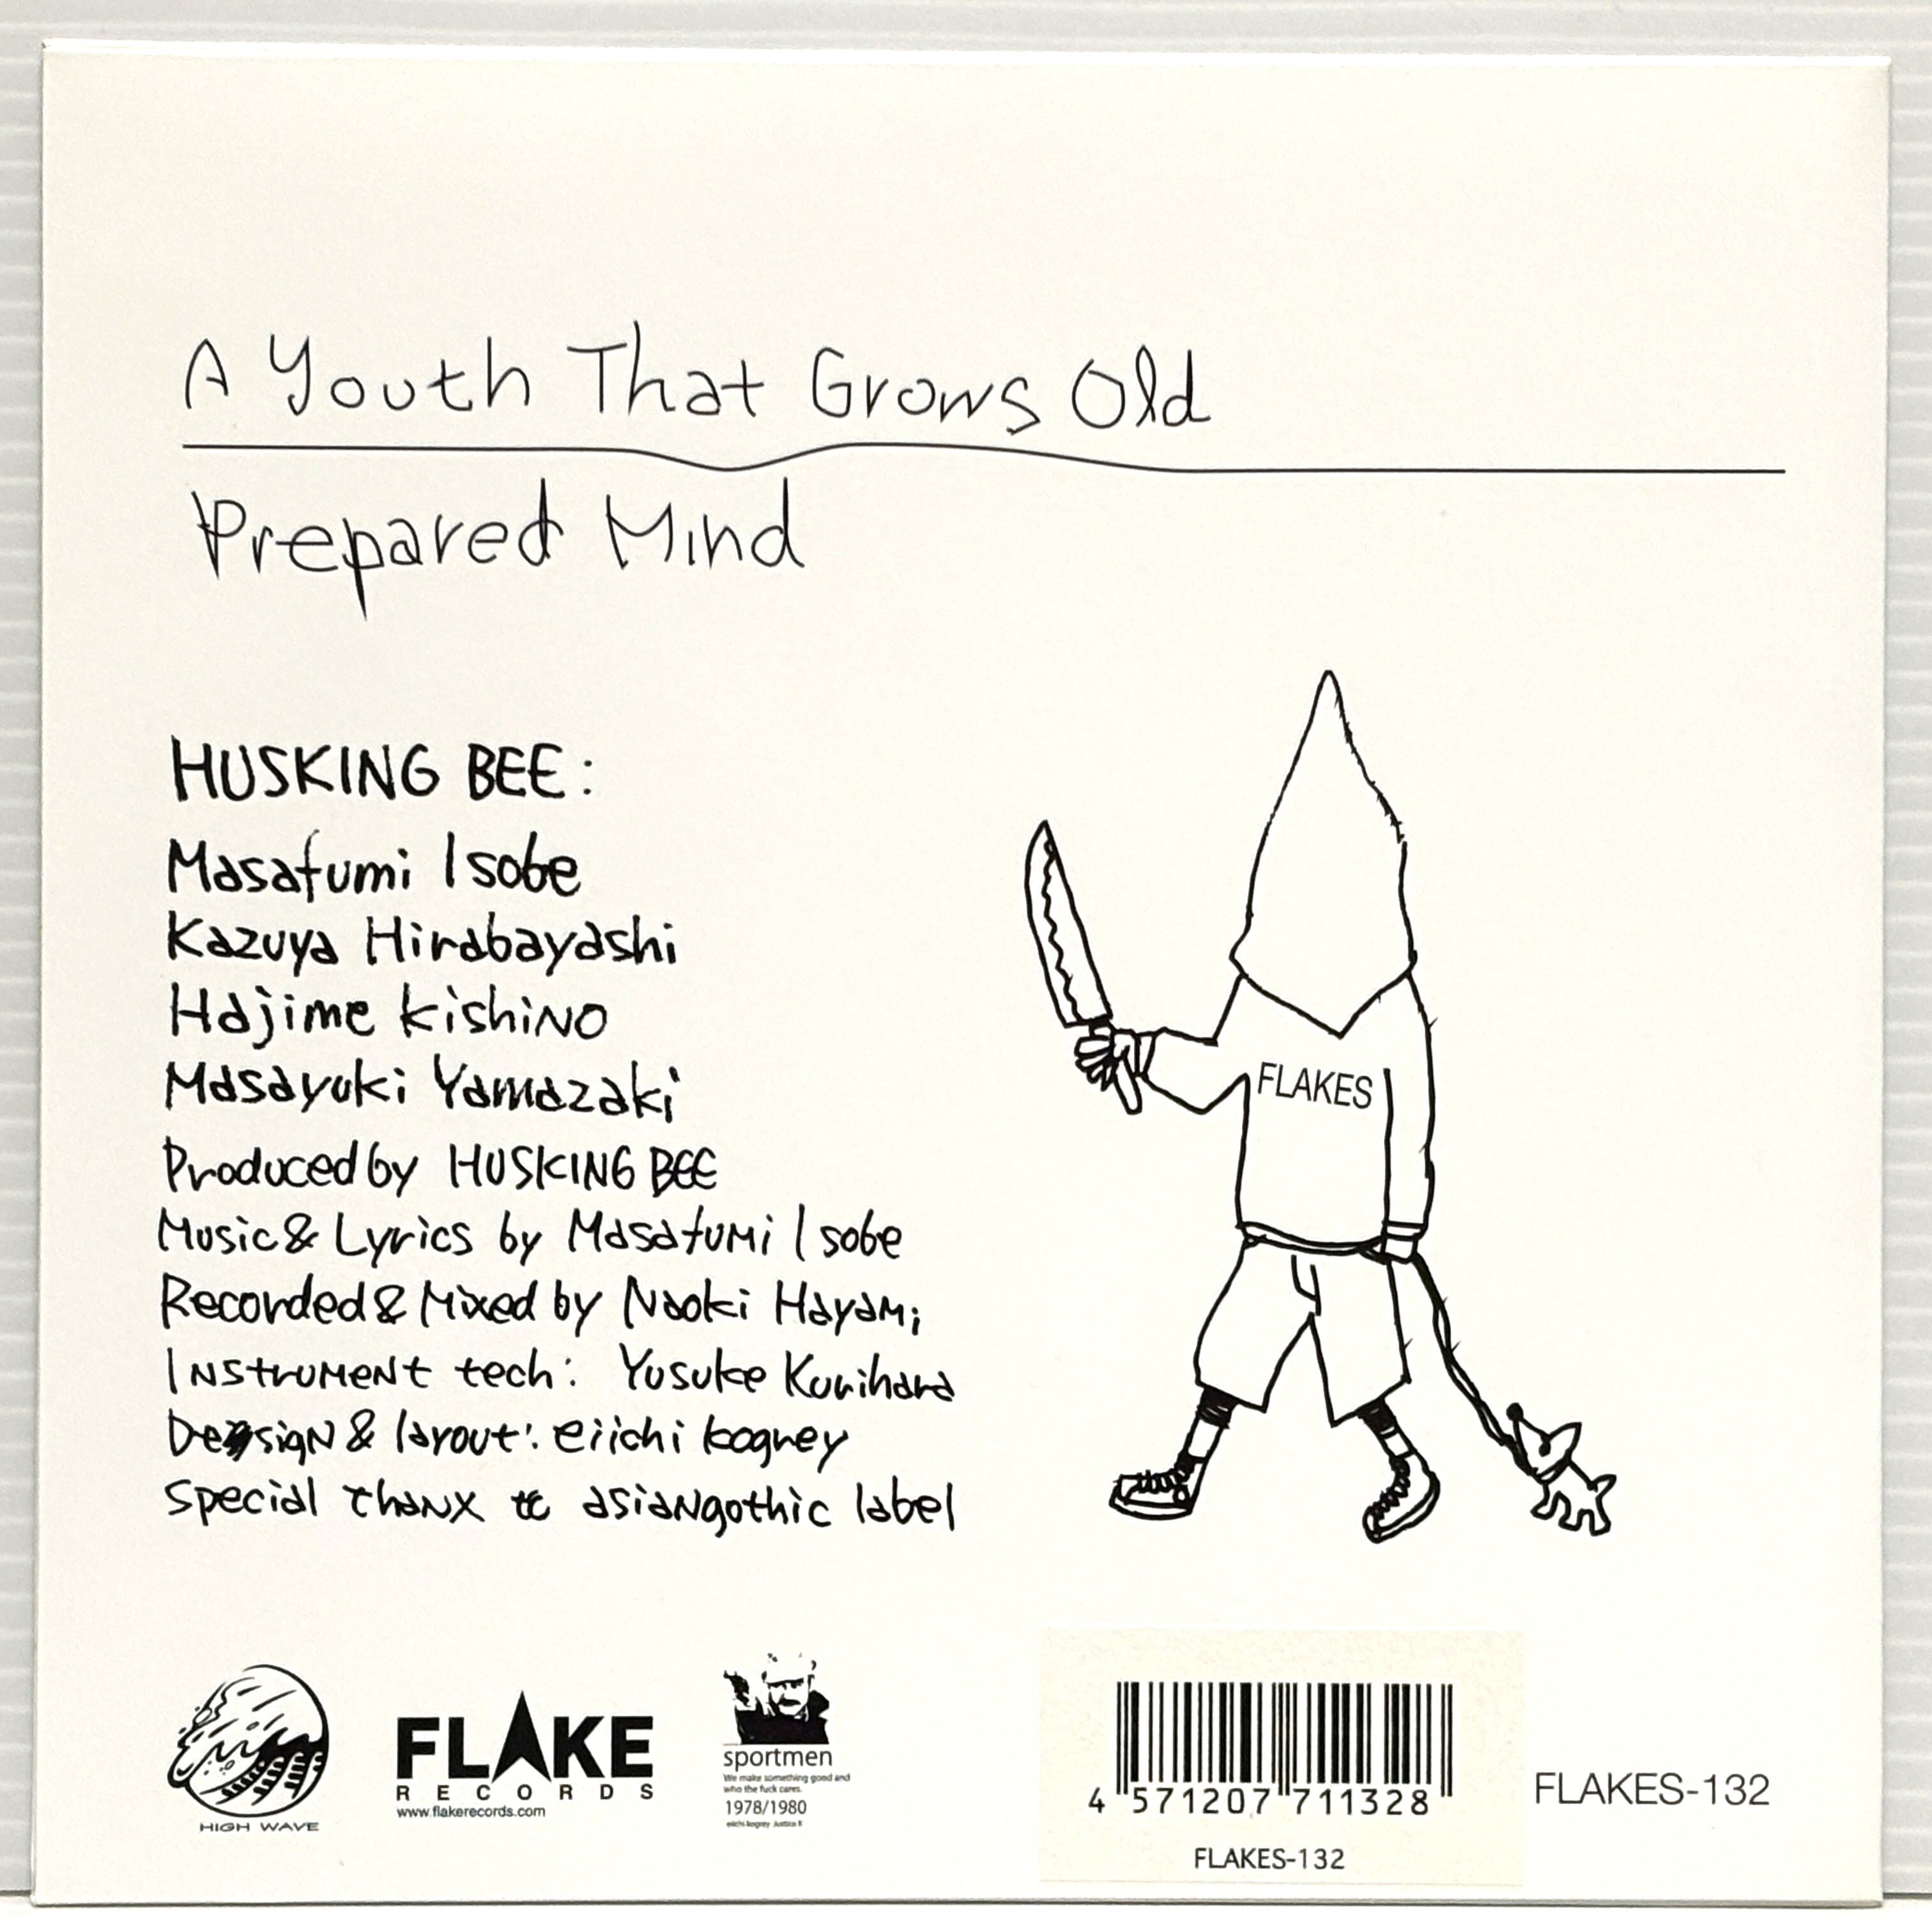 A Youth That Grows Old
Prepared Mind
HUSKING BEE:
Masafumi Isobe
Kazuya Hirabayashi
Hajime Kishino
Masayuki Yamazaki
Produced by HUSKING BEE
Music & Lyrics by Masafumi Isobe
Recorded & Mixed by Naoki Hayami
Instrument tech: Yusuke Kurihara
Design & layout: eiichi kogrey
special thanx to asiangothic label
FLAKES
HIGH WAVE
FLAKE
RECORDS
www.flakerecords.com
sportmen
We make something good and
who the fuck cares.
1978/1980
eiichi kogrey Justice
4 571207 711328
FLAKES-132
FLAKES-132